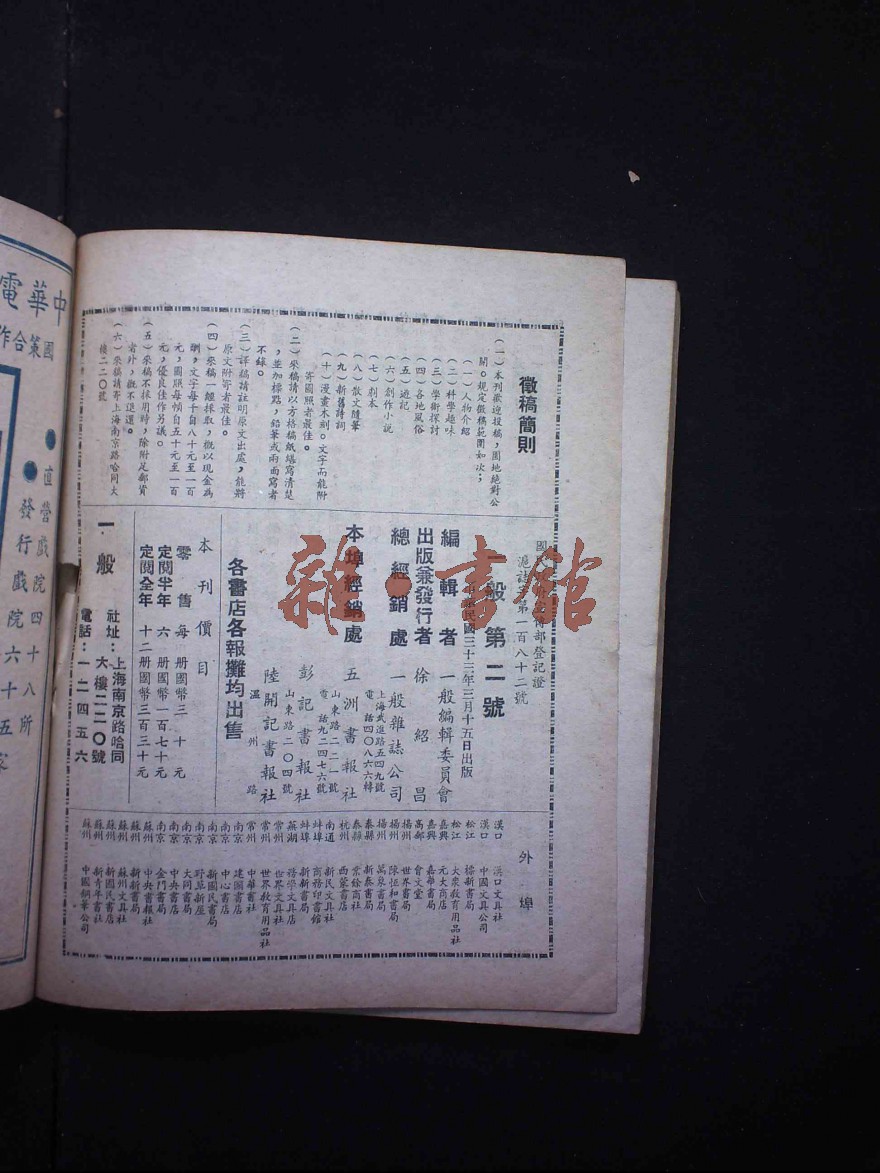 徵稿簡則
(一)本刊歡迎投稿,園地絕對公
開。規定徵稿範圍如次:
(一)人物介紹
(二)科學趣味
(三)學術探討
(四)各地風俗
(五)遊記
(六)創作小說
(七)劇本
(八)散文隨筆
(九)新舊詩詞
(十)漫畫木刻。文字而能附
寄圖照者最佳。
(二)來稿請以方格稿紙繕寫清楚
,並加標點,鉛筆或兩面寫者
不錄。
(三)譯稿請註明原文出處,能將
原文附寄者最佳。
(四)來稿一經採取,概以現金為
酬,文字每千自八十元至一百
元,圖照每幀自五十元至一百
元,優良佳作另議。
(五)來稿不採用時,除附足郵資
者外,概不退還。
(六)來稿請寄上海南京路哈同大
樓二二〇號
傳部登記證
滬誌字第一百八十二號
一般 第二號
中華民國三十三年三月十五日出版
編輯者 一般編輯委員會
出版兼發行者 徐紹昌
總經銷處 一般雜誌公司
上海武進路五四九號
電話四〇八六六轉
本埠經銷處 五洲書報社
山東路二二一號
電話九二四七六號
彭記書報社
山東路二〇四號
陸開記書報社
溫州路
各書店各報攤均出售
本刊價目
零售每冊國幣三十元
定閱半年 六冊國幣一百七十元
定閱全年 十二冊國幣三百三十元
一般
社址:上海南京路哈同
大樓二二〇號
電話:一二四五六
外埠
漢口 漢口文具社
漢口 中國文具公司
松江 新書局
松江 大眾教育用品社
嘉興 元大商店
嘉興 嘉華書局
高郵 會文堂
揚州 世界書局
揚州 陳恒和書局
揚州 萬象書局
泰縣 新泰書局
泰縣 景徐商社
杭州 西蒙書店
南通 新民文具社
蚌埠 商務印書館
蚌埠 新新書局
蕪湖 科學文具店
常州 世界文具社
常州 世界教育用品社
常州 中華書社
南京 建國書店
南京 中心書店
南京 新國民書局
南京 野草新屋
南京 大同書局
南京 中央書店
南京 金門書店
蘇州 中央書報社
蘇州 新新書局
蘇州 蘇州文具社
蘇州 新國民書局
蘇州 新青年書社
蘇州 中國鋼筆公司
中華電
國策合作
●直營戲院四十八所
●發行戲院六十五家
雜·書館